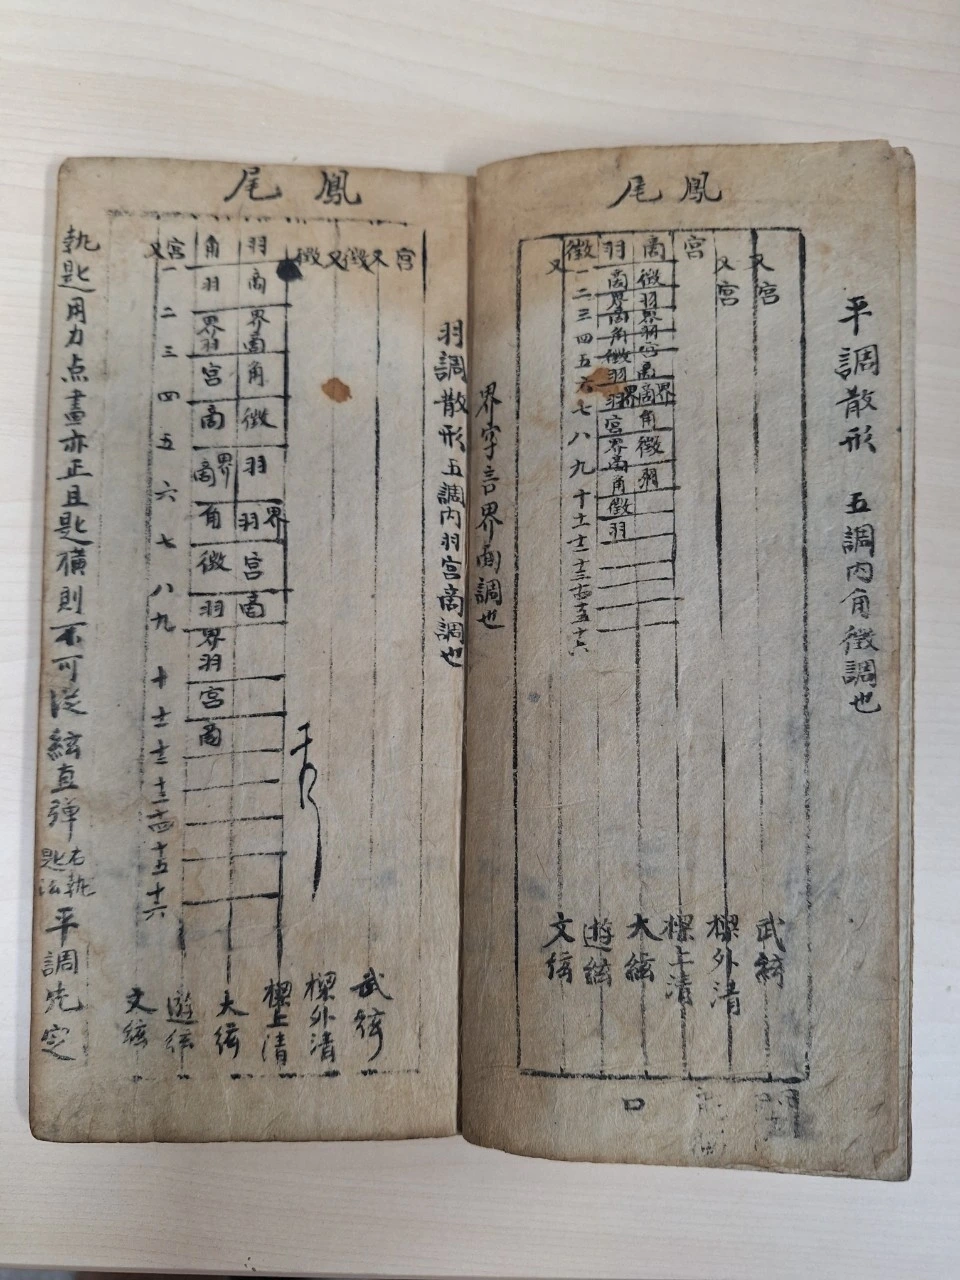 鳳尾
平調散形 五調内角徵調也
又宮
又宮
宮
商 徵 羽 界羽 宮 商 界商 角 徵 羽
羽 商 界商 角 徵 羽 界羽 宮 界商 角 徵 羽
徵 一 二 三 四 五 六 七 八 九 十 十一 十二 十三 十四 十五 十六
又
武絃
棵外清
棵上清
大絃
遊絃
文絃
口
界字言界面調也
鳳尾
羽調散形五調内羽宮商調也
宮
又徵
又徵
羽 商 界商 角 徵 羽 界羽 宮 商
角 羽 界羽 宮 商 界商 角 徵 羽 界羽 宮 商
宮 一 二 三 四 五 六 七 八 九 十 十一 十二 十三 十四 十五 十六
又
武絃
棵外清
棵上清
大絃
遊絃
文絃
執匙用力点畫亦正且匙橫則不可從絃直弹 右執匙法 平調先定